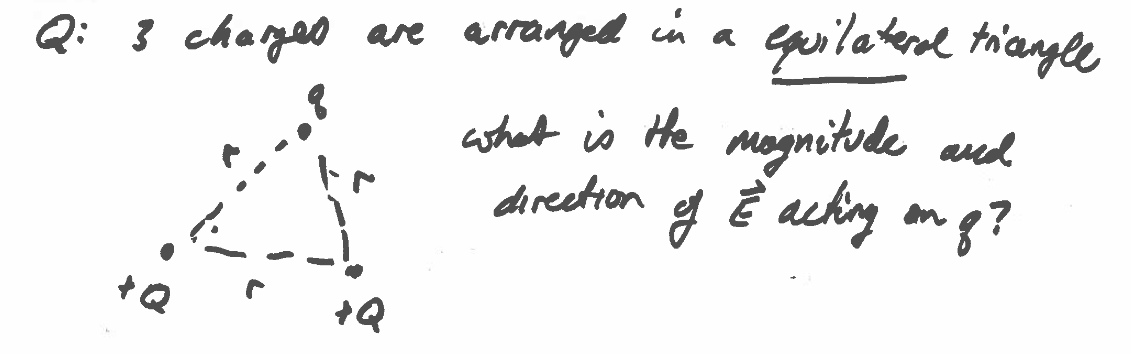 Q: 3 charges are arranged in a equilateral triangle
q
what is the magnitude and
r
r
direction of E⃗ acting on q?
+Q
r
+Q